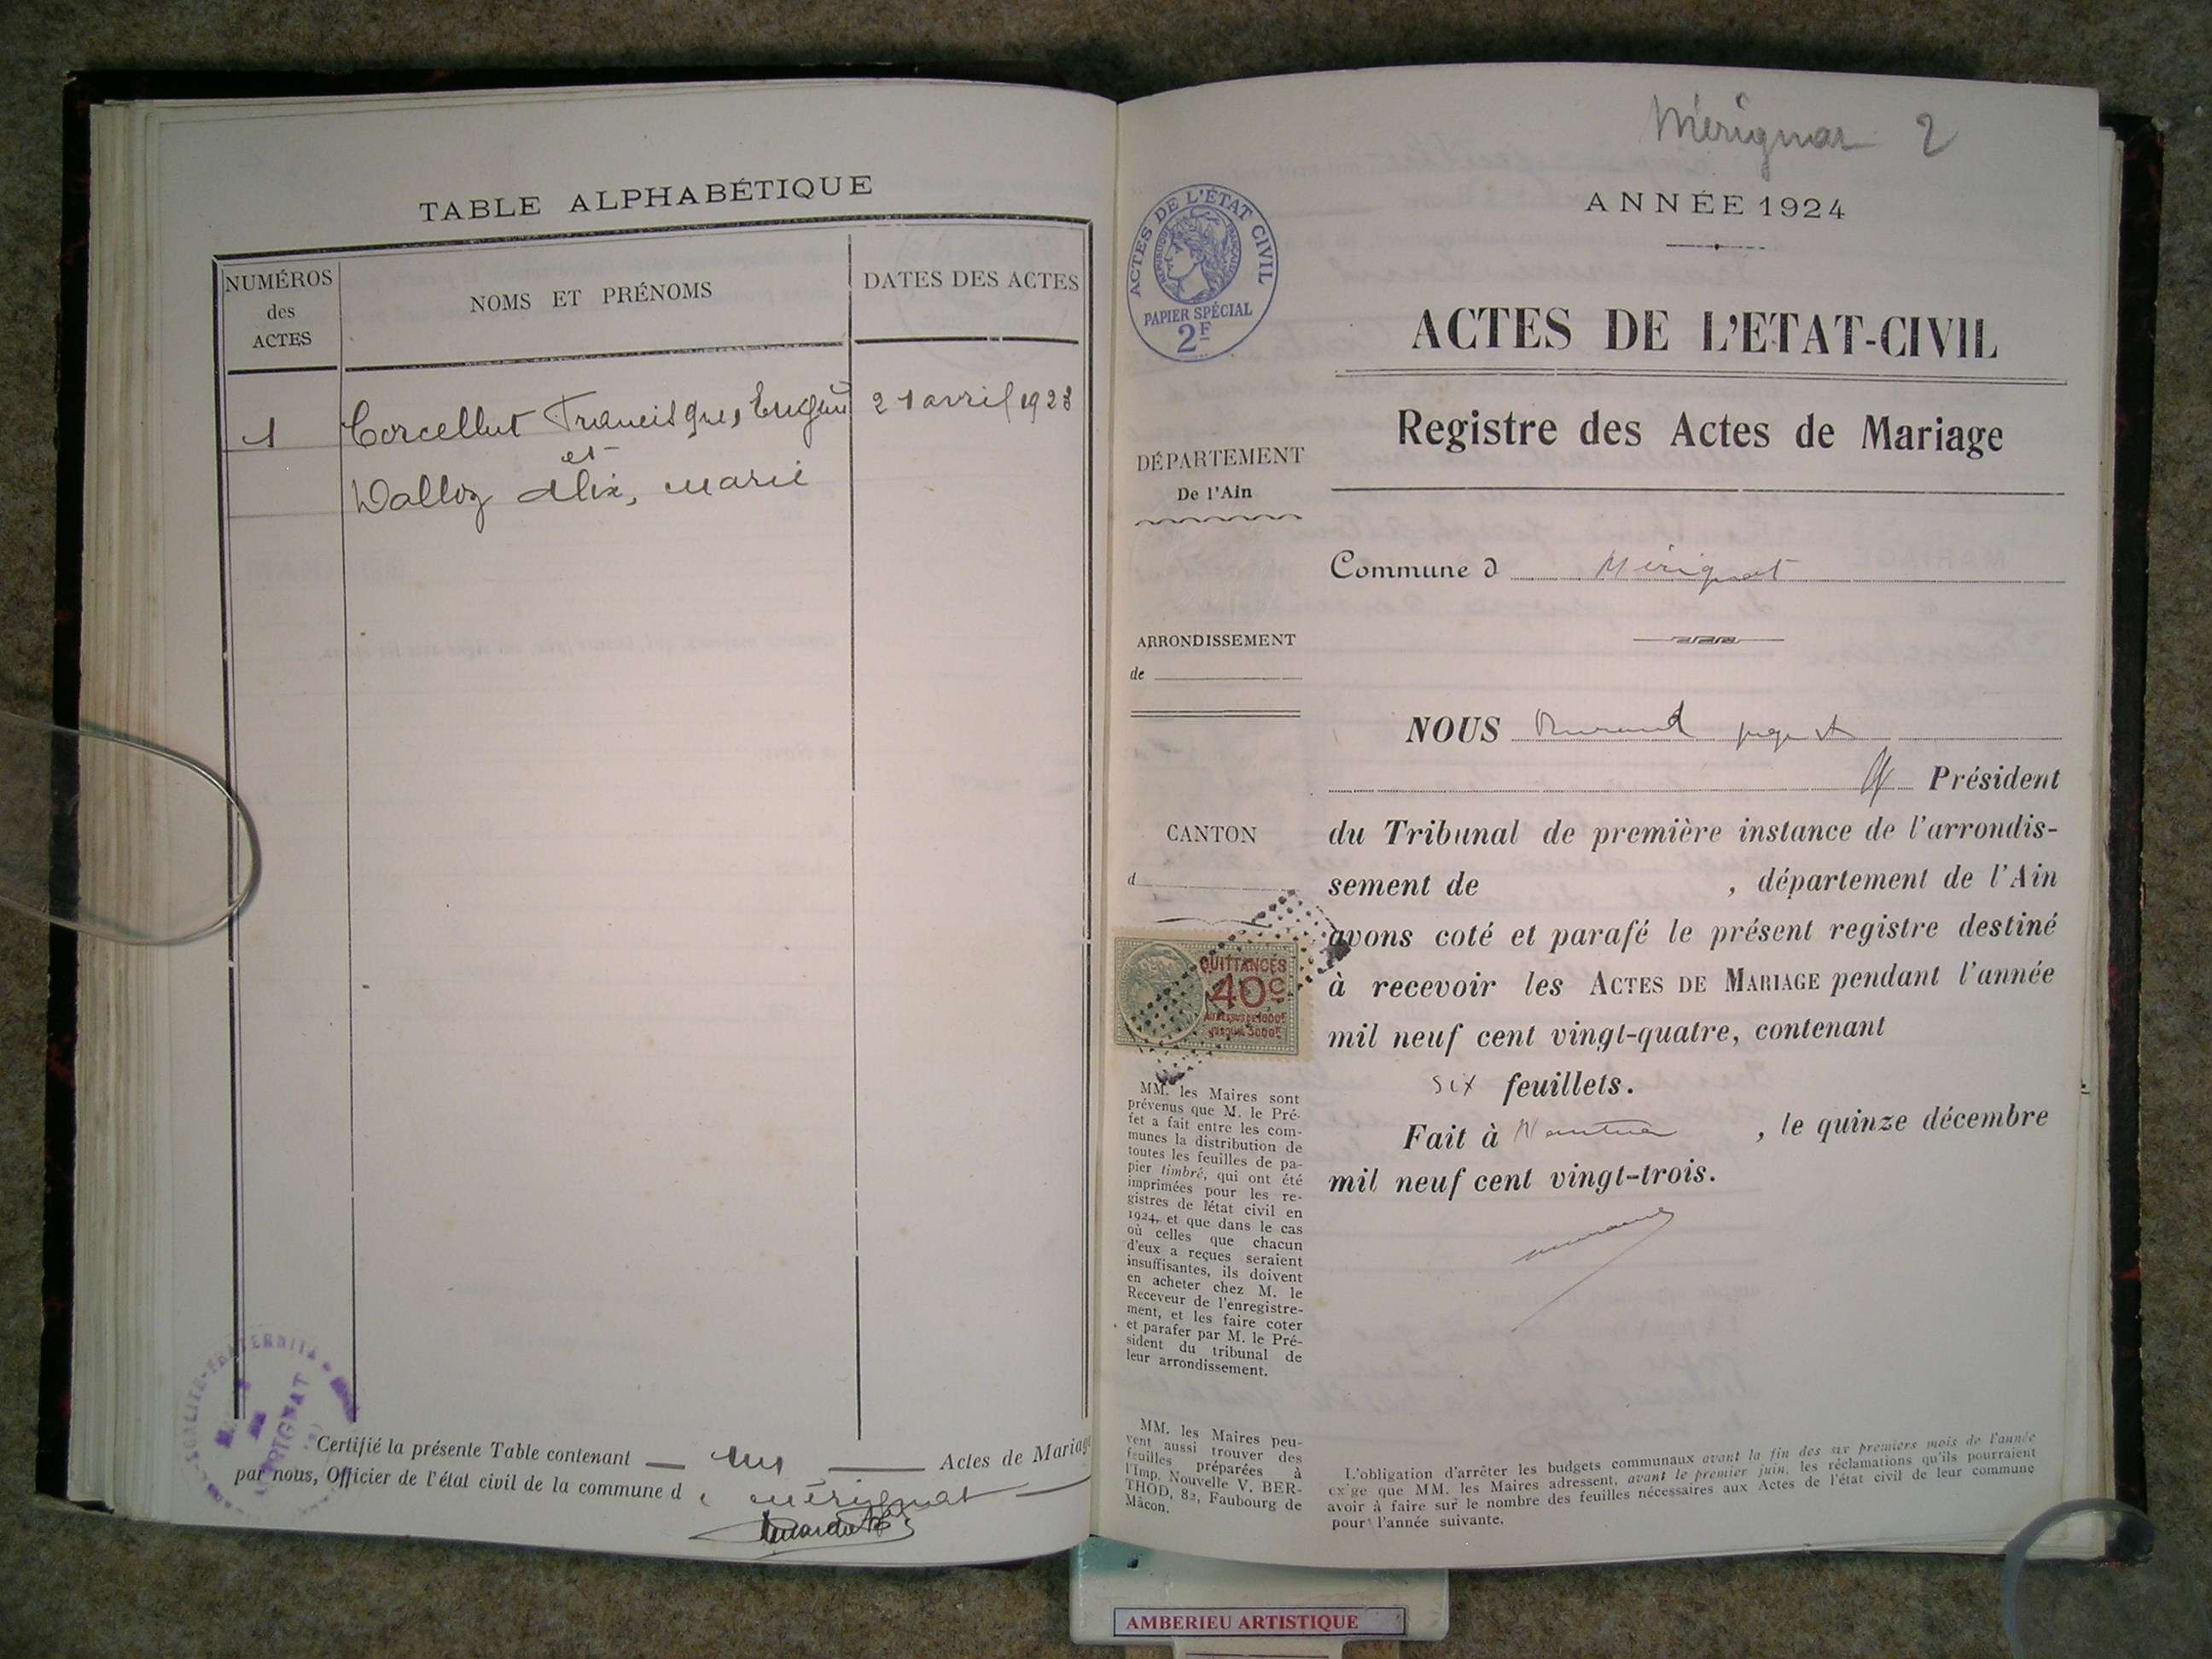 TABLE ALPHABÉTIQUE
NUMÉROS
des
ACTES
NOMS ET PRÉNOMS
DATES DES ACTES
1
Corcellut Francisque, Eugène
21 avril 1923
et
Dalloz Alix, Marie
EGALITE-FRATERNITE
MERIGNAT
Certifié la présente Table contenant un Actes de Mariage
par nous, Officier de l'état civil de la commune d e Mérignat
Mérignat 2
ANNÉE 1924
ACTES DE L'ÉTAT CIVIL
RÉPUBLIQUE FRANÇAISE
PAPIER SPÉCIAL
2F
ACTES DE L'ETAT-CIVIL
Registre des Actes de Mariage
DÉPARTEMENT
De l'Ain
Commune d Mérignat
ARRONDISSEMENT
de
NOUS Durand juge
Président
CANTON
d
du Tribunal de première instance de l'arrondis-
sement de , département de l'Ain
avons coté et parafé le présent registre destiné
à recevoir les ACTES DE MARIAGE pendant l'année
mil neuf cent vingt-quatre, contenant
six feuillets.
Fait à Nantua , le quinze décembre
mil neuf cent vingt-trois.
QUITTANCES
40c
AU DESSUS DE 1000F
JUSQU'À 3000F
MM. les Maires sont
prévenus que M. le Pré-
fet a fait entre les com-
munes la distribution de
toutes les feuilles de pa-
pier timbré, qui ont été
imprimées pour les re-
gistres de l'état civil en
1924, et que dans le cas
où celles que chacun
d'eux a reçues seraient
insuffisantes, ils doivent
en acheter chez M. le
Receveur de l'enregistre-
ment, et les faire coter
et parafer par M. le Pré-
sident du tribunal de
leur arrondissement.
MM. les Maires peu-
vent aussi trouver des
feuilles préparées à
l'Imp. Nouvelle V. BER-
THOD, 82, Faubourg de
Mâcon.
L'obligation d'arrêter les budgets communaux avant la fin des six premiers mois de l'année
exige que MM. les Maires adressent, avant le premier juin, les réclamations qu'ils pourraient
avoir à faire sur le nombre des feuilles nécessaires aux Actes de l'état civil de leur commune
pour l'année suivante.
AMBERIEU ARTISTIQUE